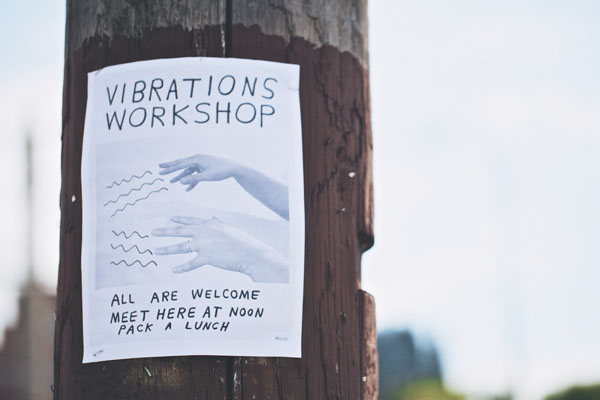 VIBRATIONS
WORKSHOP
ALL ARE WELCOME
MEET HERE AT NOON
PACK A LUNCH